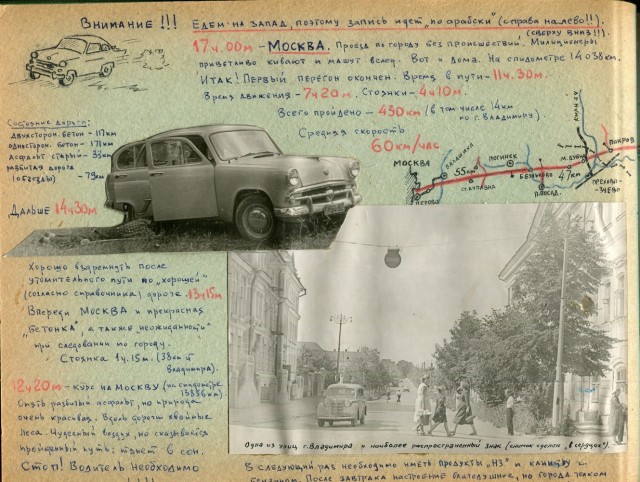 Внимание!!! Едем на запад, поэтому запись идет "по арабски" (справа налево!!).
(сверху вниз!!)
17ч.00м – Москва. Проезд по городу без происшествий. Милиционеры
приветливо кивают и машут вслед. Вот и дома. На спидометре 14038км.
Итак! Первый перегон окончен. Время в пути – 11ч.30м.
Время движения – 7ч20м. Стоянки – 4ч10м.
Всего пройдено – 430км (в том числе 14км
по г. Владимиру).
Средняя скорость
60км/час
Состояние дороги:
двухсторон. бетон – 117км
односторон. бетон – 171км
Асфальт старый – 33км
разбитая дорога
(объезды) – 79км
Москва
Перово
Балашиха
55км
ст. Купавна
Ногинск
Буньково
П.Посад
47км
М. Дубна
Покров
Орехово-
Зуево
Дальше 14ч30м
Хорошо вздремнуть после
утомительного пути по "хорошей"
(согласно справочника) дороге. 13ч15м
Впереди Москва и прекрасная
"бетонка", а также неожиданности
при следовании по городу.
Стоянка 1ч.15м. (38км от
Владимира).
12ч20м – курс на Москву (на спидометре
13886км)
Опять разбитый асфальт, но природа
очень красивая. Вдоль дороги хвойные
леса. Чудесный воздух, но сказывается
пройденный путь: тянет в сон.
Стоп! Водителю необходимо
Одна из улиц г. Владимира и наиболее распространенный знак (снимок сделан "в сердцах").
В следующий раз необходимо иметь продукты "НЗ" и канистру с
бензином. После завтрака настроение благодушное, но города толком